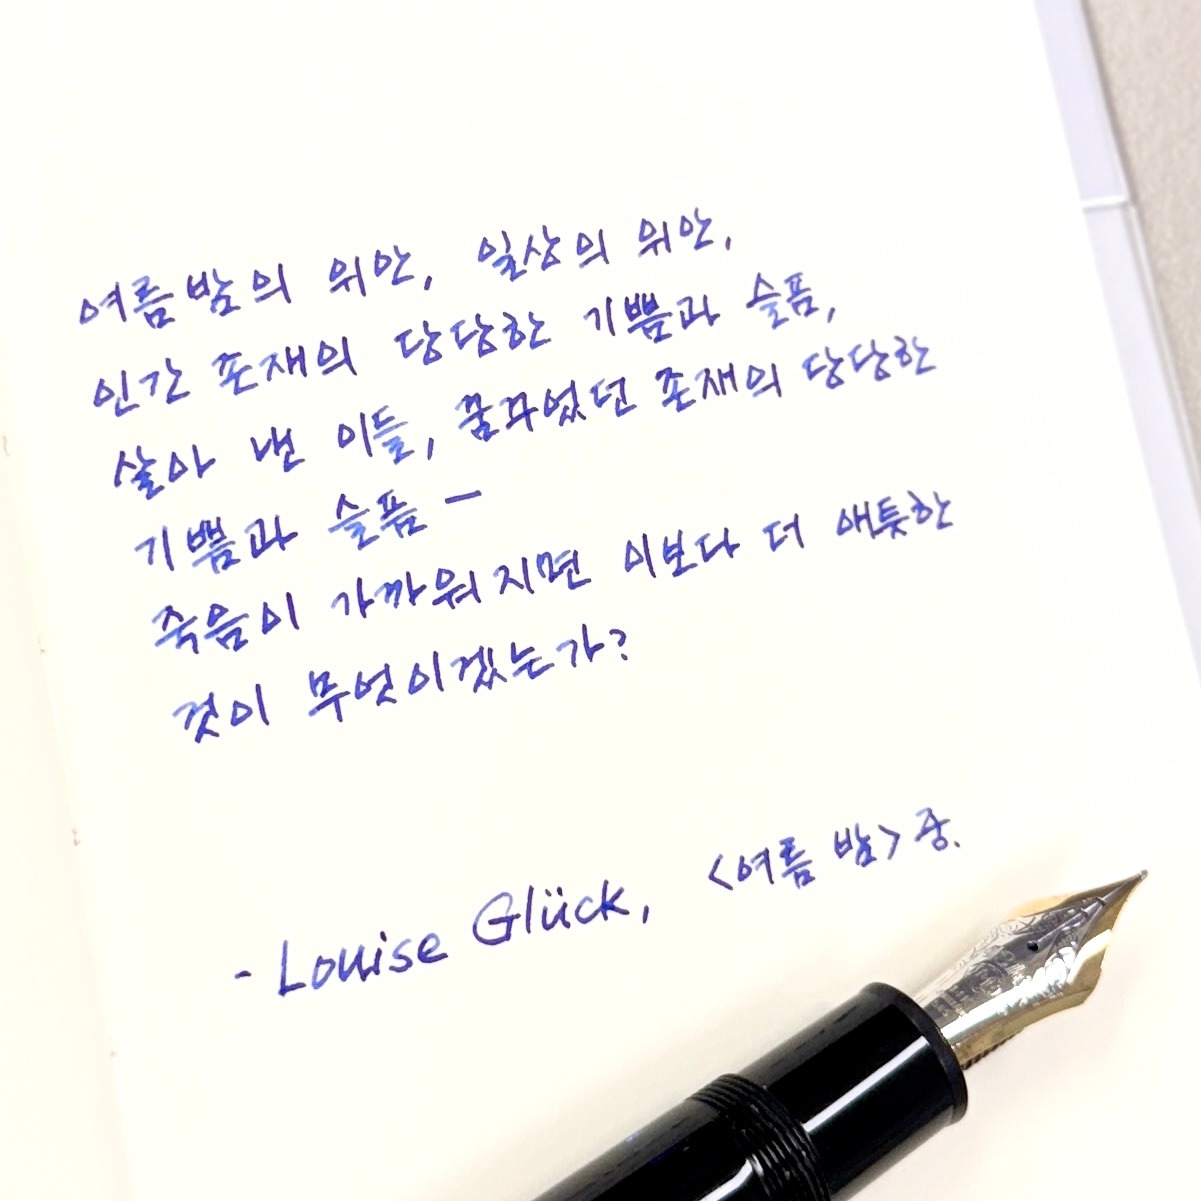 여름밤의 위안, 일상의 위안,
인간 존재의 당당한 기쁨과 슬픔,
살아 낸 이들, 꿈꾸었던 존재의 당당한
기쁨과 슬픔 —
죽음이 가까워지면 이보다 더 애틋한
것이 무엇이겠는가?
- Louise Glück, <여름 밤> 중.